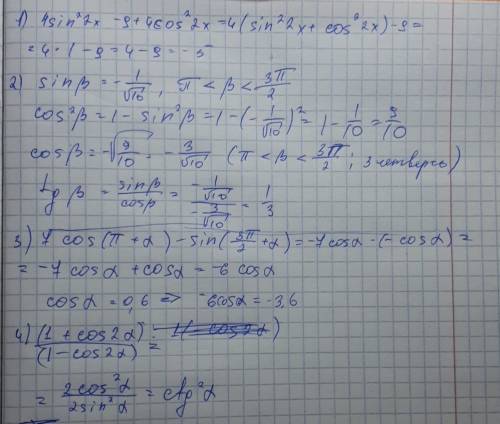 1) 4sin²2x - 9 + 4cos²2x = 4(sin²2x + cos²2x) - 9 =
= 4·1 - 9 = 4 - 9 = -5
2) sinβ = -1/√10, π < β < 3π/2
cos²β = 1 - sin²β = 1 - (-1/√10)² = 1 - 1/10 = 9/10
cosβ = -√(9/10) = -3/√10 (π < β < 3π/2; 3 четверть)
tg β = sinβ/cosβ = (-1/√10)/(-3/√10) = 1/3
3) 7cos(π+α) - sin(3π/2 + α) = -7cosα - (-cosα) =
= -7cosα + cosα = -6cosα
cosα = 0,6 => -6cosα = -3,6
4) (1 + cos2α)/(1 - cos2α) =
= 2cos²α/2sin²α = ctg²α